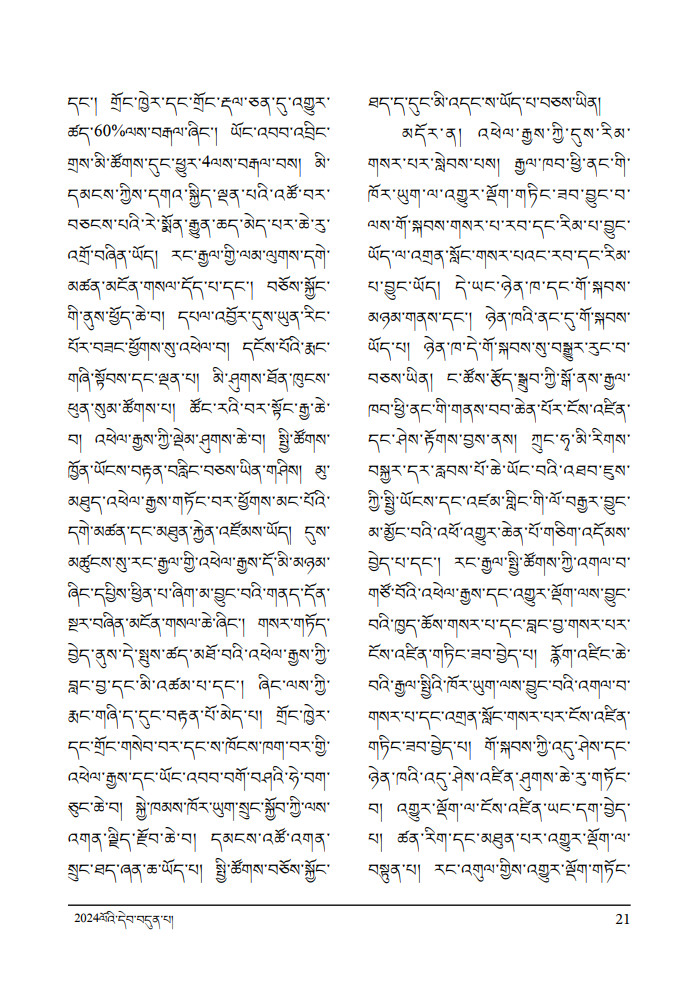 དང་། གྲོང་ཁྱེར་དང་གྲོང་རྡལ་ཅན་དུ་འགྱུར་
ཚད་60%ལས་བརྒལ་ཞིང་། ཡོང་འབབ་འབྲིང་
གྲས་མི་ཚོགས་དུང་ཕྱུར་4ལས་བརྒལ་བས། མི་
དམངས་ཀྱིས་དགའ་སྐྱིད་ལྡན་པའི་འཚོ་བར་
བཅངས་པའི་རེ་སྨོན་རྒྱུན་ཆད་མེད་པར་ཆེ་རུ་
འགྲོ་བཞིན་ཡོད། རང་རྒྱལ་གྱི་ལམ་ལུགས་དགེ་
མཚན་མངོན་གསལ་དོད་པ་དང་། བཅོས་སྐྱོང་
གི་ནུས་ཕྱོད་ཆེ་བ། དཔལ་འབྱོར་དུས་ཡུན་རིང་
པོར་བཟང་ཕྱོགས་སུ་འཕེལ་བ། དངོས་པོའི་རྨང་
གཞི་སྟོབས་དང་ལྡན་པ། མི་ཤུགས་ཐོན་ཁུངས་
ཕུན་སུམ་ཚོགས་པ། ཚོང་རའི་བར་སྟོང་རྒྱ་ཆེ་
བ། འཕེལ་རྒྱས་ཀྱི་ལྡེམ་ཤུགས་ཆེ་བ། སྤྱི་ཚོགས་
ཁྱོན་ཡོངས་བརྟན་བརླིང་བཅས་ཡིན་གཤིས། མུ་
མཐུད་འཕེལ་རྒྱས་གཏོང་བར་ཕྱོགས་མང་པོའི་
དགེ་མཚན་དང་མཐུན་རྐྱེན་འཛོམས་ཡོད། དུས་
མཚུངས་སུ་རང་རྒྱལ་གྱི་འཕེལ་རྒྱས་དོ་མི་མཉམ་
ཞིང་དཔྱིས་ཕྱིན་པ་ཞིག་མ་བྱུང་བའི་གནད་དོན་
སྔར་བཞིན་མངོན་གསལ་ཆེ་ཞིང་། གསར་གཏོད་
བྱེད་ནུས་དེ་སྤུས་ཚད་མཐོ་བའི་འཕེལ་རྒྱས་ཀྱི་
བླང་བྱ་དང་མི་འཚམ་པ་དང་། ཞིང་ལས་ཀྱི་
རྨང་གཞི་ད་དུང་བརྟན་པོ་མེད་པ། གྲོང་ཁྱེར་
དང་གྲོང་གསེབ་བར་དང་ས་ཁོངས་ཁག་བར་གྱི་
འཕེལ་རྒྱས་དང་ཡོང་འབབ་བགོ་བཤའི་ཧེ་བག་
ཅུང་ཆེ་བ། སྐྱེ་ཁམས་ཁོར་ཡུག་སྲུང་སྐྱོབ་ཀྱི་ལས་
འགན་ལྗིད་རྫོབ་ཆེ་བ། དམངས་འཚོ་འགན་
སྲུང་ཐད་ཞན་ཆ་ཡོད་པ། སྤྱི་ཚོགས་བཅོས་སྐྱོང་
ཐད་ད་དུང་མི་འདང་ས་ཡོད་པ་བཅས་ཡིན།
མདོར་ན། འཕེལ་རྒྱས་ཀྱི་དུས་རིམ་
གསར་པར་སླེབས་པས། རྒྱལ་ཁབ་ཕྱི་ནང་གི་
ཁོར་ཡུག་ལ་འགྱུར་ལྡོག་གཏིང་ཟབ་བྱུང་བ་
ལས་གོ་སྐབས་གསར་པ་རབ་དང་རིམ་པ་བྱུང་
ཡོད་ལ་འགྲན་སློང་གསར་པའང་རབ་དང་རིམ་
པ་བྱུང་ཡོད། དེ་ཡང་ཉེན་ཁ་དང་གོ་སྐབས་
མཉམ་གནས་དང་། ཉེན་ཁའི་ནང་དུ་གོ་སྐབས་
ཡོད་པ། ཉེན་ཁ་དེ་གོ་སྐབས་སུ་བསྒྱུར་རུང་བ་
བཅས་ཡིན། ང་ཚོས་རྩོད་སྒྲུབ་ཀྱི་སྒོ་ནས་རྒྱལ་
ཁབ་ཕྱི་ནང་གི་གནས་བབ་ཆེན་པོར་ངོས་འཛིན་
དང་ཤེས་རྟོགས་བྱས་ནས། ཀྲུང་ཧྭ་མི་རིགས་
བསྐྱར་དར་རླབས་པོ་ཆེ་ཡོང་བའི་འཐབ་ཇུས་
ཀྱི་སྤྱི་ཡོངས་དང་འཛམ་གླིང་གི་ལོ་བརྒྱར་བྱུང་
མ་མྱོང་བའི་འཕོ་འགྱུར་ཆེན་པོ་གཅིག་འདོམས་
བྱེད་པ་དང་། རང་རྒྱལ་སྤྱི་ཚོགས་ཀྱི་འགལ་བ་
གཙོ་བོའི་འཕེལ་རྒྱས་དང་འགྱུར་ལྡོག་ལས་བྱུང་
བའི་ཁྱད་ཆོས་གསར་པ་དང་བླང་བྱ་གསར་པར་
ངོས་འཛིན་གཏིང་ཟབ་བྱེད་པ། རྙོག་འཛིང་ཆེ་
བའི་རྒྱལ་སྤྱིའི་ཁོར་ཡུག་ལས་བྱུང་བའི་འགལ་བ་
གསར་པ་དང་འགྲན་སློང་གསར་པར་ངོས་འཛིན་
གཏིང་ཟབ་བྱེད་པ། གོ་སྐབས་ཀྱི་འདུ་ཤེས་དང་
ཉེན་ཁའི་འདུ་ཤེས་འཛིན་ཤུགས་ཆེ་རུ་གཏོང་
བ། འགྱུར་ལྡོག་ལ་ངོས་འཛིན་ཡང་དག་བྱེད་
པ། ཚན་རིག་དང་མཐུན་པར་འགྱུར་ལྡོག་ལ་
བསྟུན་པ། རང་འགུལ་གྱིས་འགྱུར་ལྡོག་གཏོང་
2024ལོའི་དེབ་བདུན་པ།
21